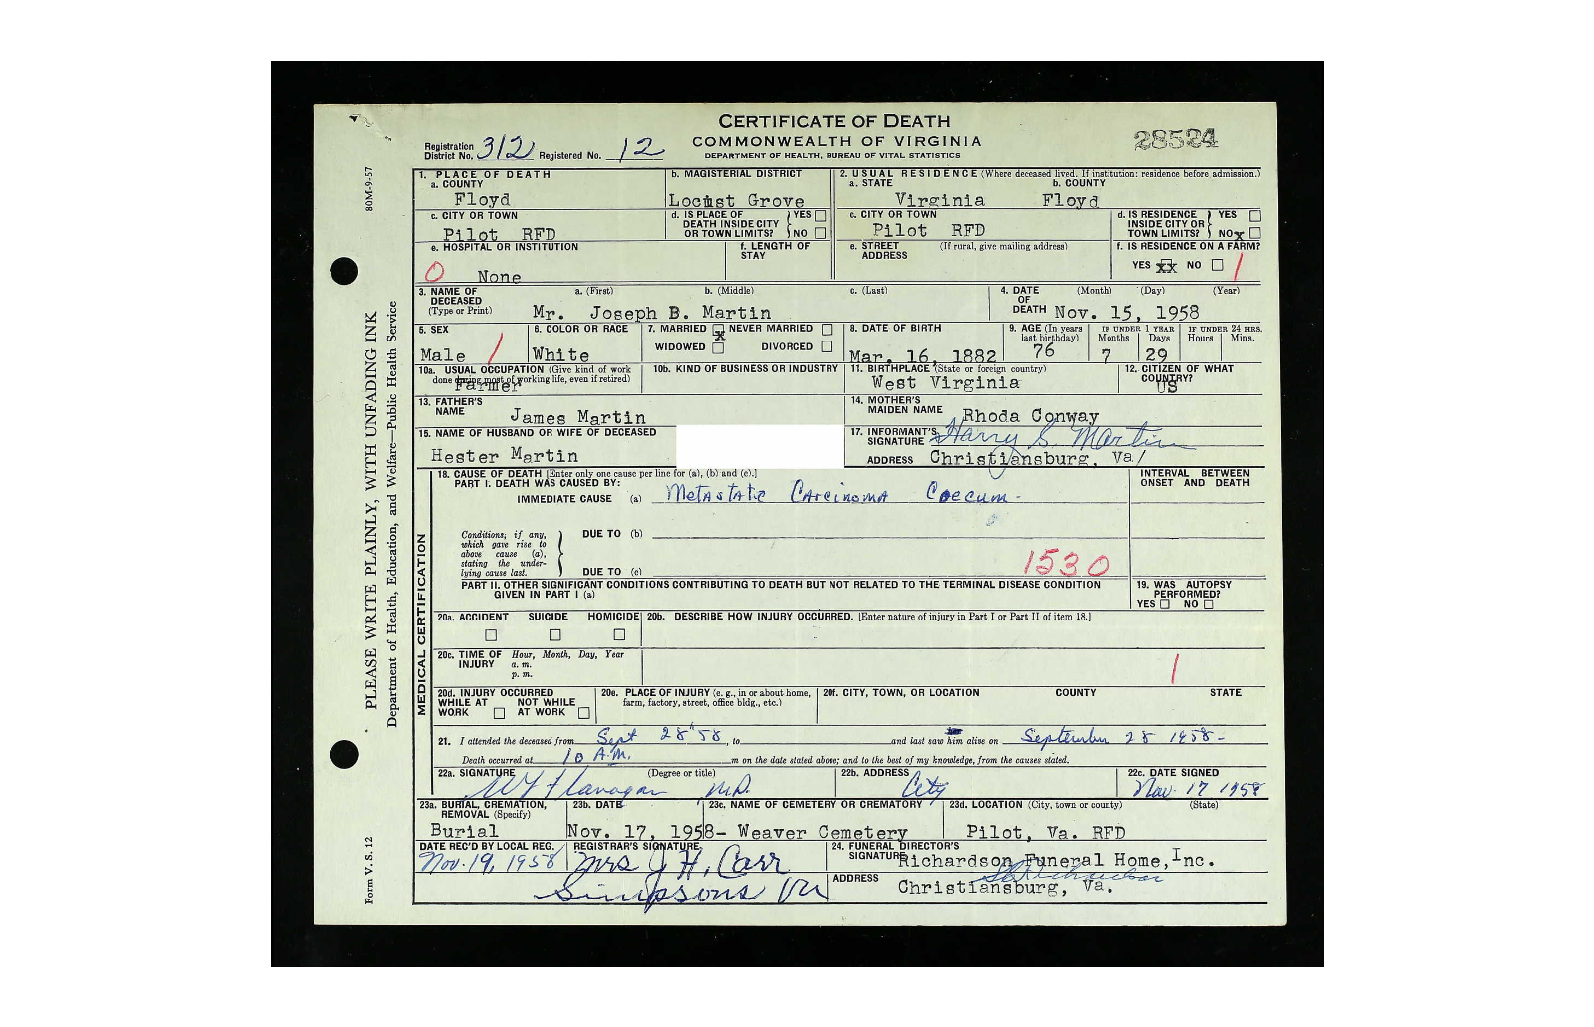 CERTIFICATE OF DEATH
COMMONWEALTH OF VIRGINIA
DEPARTMENT OF HEALTH, BUREAU OF VITAL STATISTICS
28524
Registration District No. 312 Registered No. 12
1. PLACE OF DEATH
a. COUNTY
Floyd
b. MAGISTERIAL DISTRICT
Locust Grove
2. USUAL RESIDENCE (Where deceased lived. If institution: residence before admission.)
a. STATE b. COUNTY
Virginia Floyd
c. CITY OR TOWN
Pilot RFD
d. IS PLACE OF DEATH INSIDE CITY OR TOWN LIMITS? YES NO
c. CITY OR TOWN
Pilot RFD
d. IS RESIDENCE INSIDE CITY OR TOWN LIMITS? YES NO x
e. HOSPITAL OR INSTITUTION
0 None
f. LENGTH OF STAY
e. STREET ADDRESS (If rural, give mailing address)
f. IS RESIDENCE ON A FARM?
YES xx NO 1
3. NAME OF DECEASED (Type or Print)
a. (First) b. (Middle) c. (Last)
Mr. Joseph B. Martin
4. DATE OF DEATH (Month) (Day) (Year)
Nov. 15, 1958
5. SEX
Male 1
6. COLOR OR RACE
White
7. MARRIED x NEVER MARRIED
WIDOWED DIVORCED
8. DATE OF BIRTH
Mar. 16, 1882
9. AGE (In years last birthday)
76
IF UNDER 1 YEAR
Months Days
7 29
IF UNDER 24 HRS.
Hours Mins.
10a. USUAL OCCUPATION (Give kind of work done during most of working life, even if retired)
Farmer
10b. KIND OF BUSINESS OR INDUSTRY
11. BIRTHPLACE (State or foreign country)
West Virginia
12. CITIZEN OF WHAT COUNTRY?
US
13. FATHER'S NAME
James Martin
14. MOTHER'S MAIDEN NAME Rhoda Conway
15. NAME OF HUSBAND OR WIFE OF DECEASED
Hester Martin
17. INFORMANT'S SIGNATURE Harry S. Martin
ADDRESS Christiansburg, Va/
18. CAUSE OF DEATH [Enter only one cause per line for (a), (b) and (c).]
PART I. DEATH WAS CAUSED BY:
INTERVAL BETWEEN ONSET AND DEATH
IMMEDIATE CAUSE (a) Metastatic Carcinoma Coecum -
Conditions, if any, which gave rise to above cause (a), stating the underlying cause last.
DUE TO (b)
1530
DUE TO (c)
PART II. OTHER SIGNIFICANT CONDITIONS CONTRIBUTING TO DEATH BUT NOT RELATED TO THE TERMINAL DISEASE CONDITION GIVEN IN PART I (a)
19. WAS AUTOPSY PERFORMED?
YES NO
20a. ACCIDENT SUICIDE HOMICIDE
20b. DESCRIBE HOW INJURY OCCURRED. [Enter nature of injury in Part I or Part II of item 18.]
20c. TIME OF INJURY Hour, Month, Day, Year
a. m.
p. m.
1
20d. INJURY OCCURRED
WHILE AT WORK NOT WHILE AT WORK
20e. PLACE OF INJURY (e. g., in or about home, farm, factory, street, office bldg., etc.)
20f. CITY, TOWN, OR LOCATION COUNTY STATE
21. I attended the deceased from Sept 28 '58, to and last saw him alive on September 28 1958 -
Death occurred at 10 A.M. m on the date stated above; and to the best of my knowledge, from the causes stated.
22a. SIGNATURE (Degree or title)
Flanagan M.D.
22b. ADDRESS
City
22c. DATE SIGNED
Nov. 17 1958
23a. BURIAL, CREMATION, REMOVAL (Specify)
Burial
23b. DATE
Nov. 17, 1958-
23c. NAME OF CEMETERY OR CREMATORY
Weaver Cemetery
23d. LOCATION (City, town or county) (State)
Pilot, Va. RFD
DATE REC'D BY LOCAL REG.
Nov. 19, 1958
REGISTRAR'S SIGNATURE
Mrs J H. Carr
Simpsons Va
24. FUNERAL DIRECTOR'S SIGNATURE
Richardson Funeral Home, Inc.
ADDRESS
Christiansburg, Va.
MEDICAL CERTIFICATION
80M-9-57
PLEASE WRITE PLAINLY, WITH UNFADING INK
Department of Health, Education, and Welfare—Public Health Service
Form V. S. 12